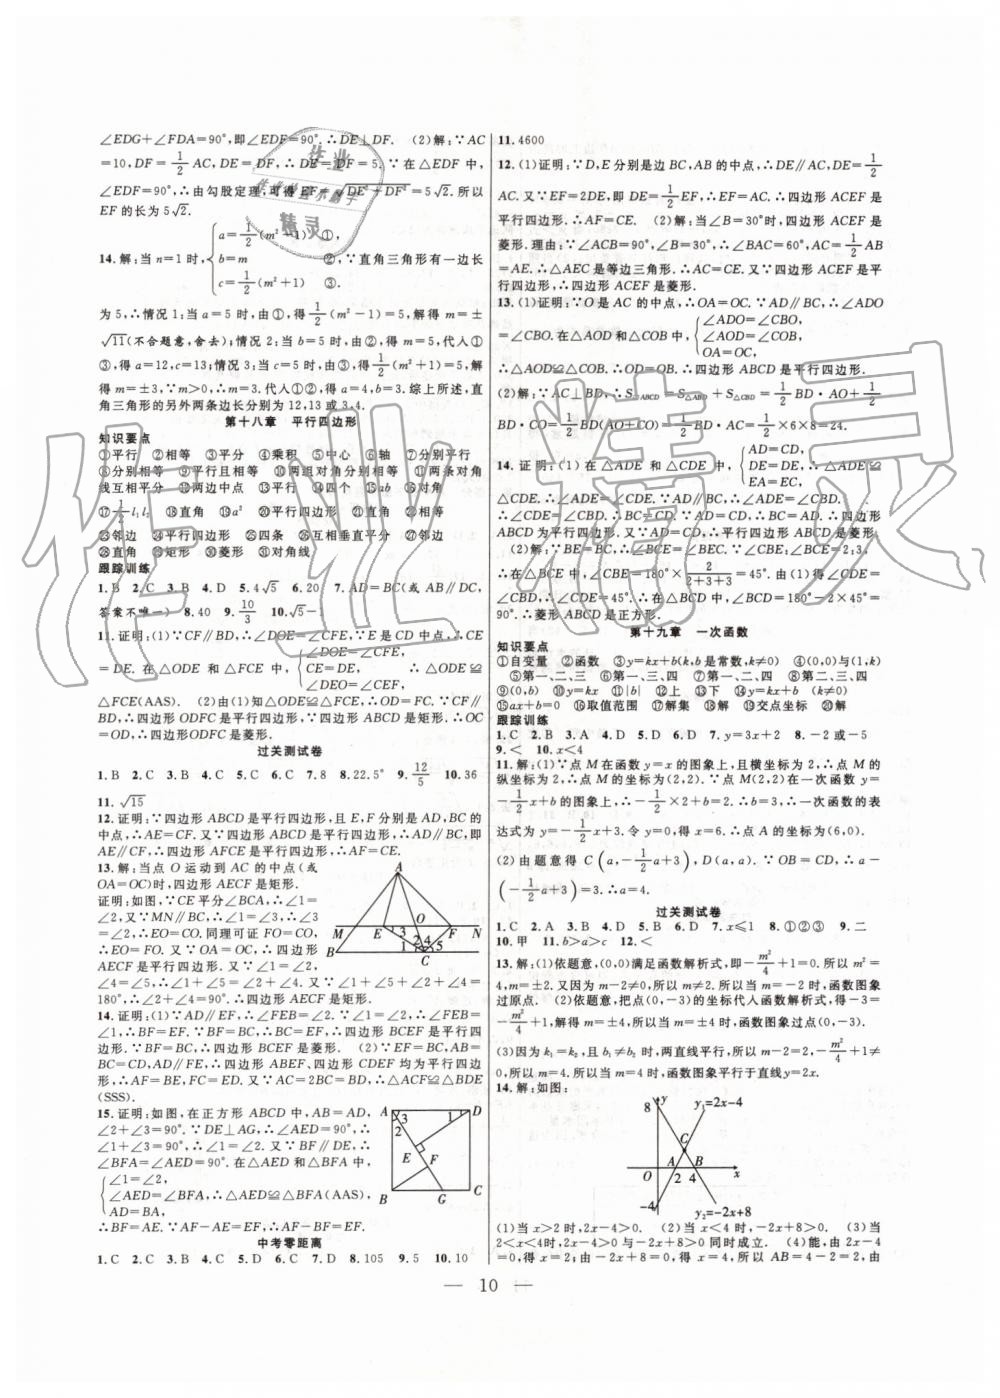 ∠EDG+∠FDA=90°,即∠EDF=90°.∴DE⊥DF. (2)解:∵AC
=10,DF=1/2AC,DE=DF.∴DE=DF=5.∵在△EDF中,
∠EDF=90°,∴由勾股定理,可得EF=√(DE²+DF²)=5√2.所以
EF的长为5√2.
14.解:当n=1时,{a=1/2(m²-1) ①, b=m ②, c=1/2(m²+1) ③. ∵直角三角形有一边长
为5,∴情况1:当a=5时,由①,得1/2(m²-1)=5,解得m=±
√11(不合题意,舍去);情况2:当b=5时,由②,得m=5,代入①
③,得a=12,c=13;情况3:当c=5时,由③,得1/2(m²+1)=5,
解得m=±3,∵m>0,∴m=3.代入①②,得a=4,b=3.综上所述,直
角三角形的另外两条边长分别为12,13或3,4.
第十八章 平行四边形
知识要点
①平行 ②相等 ③平分 ④乘积 ⑤中心 ⑥轴 ⑦分别平行
⑧分别相等 ⑨平行且相等 ⑩两组对角分别相等 ⑪两条对角
线互相平分 ⑫两边中点 ⑬平行 ⑭四个 ⑮ab ⑯对角
⑰1/2l₁l₂ ⑱直角 ⑲a² ⑳公共端点 ㉑直角 ㉒相等
㉓邻边 ㉔平行四边形 ㉕四条 ㉖互相垂直平分 ㉗邻边
㉘直角 ㉙矩形 ㉚菱形 ㉛对角线
跟踪训练
1.B 2.C 3.B 4.D 5.4√5 6.20 7.AD=BC(或AB∥DC,
答案不唯一) 8.40 9.10/3 10.√5-1
11.证明:(1)∵CF∥BD,∴∠DOE=∠CFE,∵E是CD中点,∴CE
=DE.在△ODE和△FCE中,{∠DOE=∠CFE, DE=CE, ∠DEO=∠CEF, ∴△ODE≌
△FCE(AAS). (2)由(1)知△ODE≌△FCE,∴OD=FC.∵CF∥
BD,∴四边形ODFC是平行四边形.∵四边形ABCD是矩形.∴OC
=OD,∴四边形ODFC是菱形.
过关测试卷
1.B 2.C 3.B 4.C 5.C 6.C 7.8 8.22.5° 9.12/5 10.36
11.√15
12.证明:∵四边形ABCD是平行四边形,且E,F分别是AD,BC的
中点,∴AE=CF.又∵四边形ABCD是平行四边形,∴AD∥BC,即
AE∥CF.∴四边形AFCE是平行四边形,∴AF=CE.
13.解:当点O运动到AC的中点(或
OA=OC)时,四边形AECF是矩形.
证明:如图,∵CE平分∠BCA,∴∠1=
∠2,又∵MN∥BC,∴∠1=∠3,∴∠3=
∠2,∴EO=CO.同理可证FO=CO,
∴EO=FO.又∵OA=OC,∴四边形
AECF是平行四边形.又∵∠1=∠2,
∠4=∠5,∴∠1+∠5=∠2+∠4.又∵∠1+∠5+∠2+∠4=
180°,∴∠2+∠4=90°.∴四边形AECF是矩形.
14.证明:(1)∵AD∥EF,∴∠FEB=∠2.∵∠1=∠2,∴∠FEB=
∠1,∴BF=EF.∵BF=BC,∴BC=EF,∴四边形BCEF是平行四
边形.∵BF=BC,∴四边形BCEF是菱形. (2)∵EF=BC,AB=
BC=CD,AD∥FE,∴四边形ABEF、四边形CDEF均为平行四边
形,∴AF=BE,FC=ED.又∵AC=2BC=BD,∴△ACF≌△BDE
(SSS).
15.证明:如图,在正方形ABCD中,AB=AD,
∠2+∠3=90°.∵DE⊥AG,∴∠AED=90°,
∴∠1+∠3=90°,∴∠1=∠2.又∵BF∥DE,∴
∠BFA=∠AED=90°.在△AED和△BFA中,
{∠1=∠2, ∠AED=∠BFA, AD=BA, ∴△AED≌△BFA(AAS),
∴BF=AE.∵AF-AE=EF,∴AF-BF=EF.
中考零距离
1.C 2.D 3.B 4.C 5.B 6.D 7.D 8.105 9.5 10.10
11.4600
12.(1)证明:∵D,E分别是边BC,AB的中点,∴DE∥AC,DE=1/2
AC.又∵EF=2DE,即DE=1/2EF,∴EF=AC,∴四边形ACEF是
平行四边形.∴AF=CE. (2)解:当∠B=30°时,四边形ACEF是
菱形.理由:∵∠ACB=90°,∠B=30°,∴∠BAC=60°,AC=1/2AB
=AE.∴△AEC是等边三角形.∴AC=CE.又∵四边形ACEF是平
行四边形,∴四边形ACEF是菱形.
13.(1)证明:∵O是AC的中点,∴OA=OC.∵AD∥BC,∴∠ADO
=∠CBO.在△AOD和△COB中,{∠ADO=∠CBO, ∠AOD=∠COB, OA=OC,
∴△AOD≌△COB,∴AD=CB,∴四边形ABCD是平行四边形.
(2)解:∵AC⊥BD,∴S▱ABCD=S△ABD+S△CBD=1/2BD·AO+1/2
BD·CO=1/2BD(AO+CO)=1/2BD·AC=1/2×6×8=24.
14.证明:(1)在△ADE和△CDE中,{AD=CD, DE=DE, EA=EC, ∴△ADE≌
△CDE.∴∠ADE=∠CDE.∵AD∥BC,∴∠ADE=∠CBD.
∴∠CDE=∠CBD,∴BC=CD.∵AD=CD,∴BC=AD,∴四边形
ABCD为平行四边形.又∵AD=CD,∴平行四边形ABCD是菱形.
(2)解:∵BE=BC,∴∠BCE=∠BEC.∵∠CBE:∠BCE=2:3,
∴在△BCE中,∠CBE=180°×2/(2+3+3)=45°.由(1)得∠CBE=
∠CBD,∴∠CDE=45°.∴在△BCD中,∠BCD=180°-2×45°=
90°.∴菱形ABCD是正方形.
第十九章 一次函数
知识要点
①自变量 ②函数 ③y=kx+b(k,b是常数,k≠0) ④(0,0)与(1,k)
⑤第一、二、三 ⑥第一、三、四 ⑦第一、二、四 ⑧第二、三、四
⑨(0,b) ⑩y=kx ⑪|b| ⑫上 ⑬下 ⑭y=kx+b (k≠0)
⑮ax=0 ⑯取值范围 ⑰解集 ⑱解 ⑲交点坐标 ⑳解
跟踪训练
1.C 2.B 3.A 4.D 5.D 6.D 7.y=3x+2 8.-2或-5
9.< 10.x<4
11.解:(1)∵点M在函数y=x的图象上,且横坐标为2,∴点M的
纵坐标为2,∴点M的坐标为(2,2).∵点M(2,2)在一次函数y=
-1/2x+b的图象上,∴-1/2×2+b=2,∴b=3,∴一次函数的表
达式为y=-1/2x+3.令y=0,得x=6.∴点A的坐标为(6,0).
(2)由题意得C(a,-1/2a+3),D(a,a).∵OB=CD,∴a-
(-1/2a+3)=3.∴a=4.
过关测试卷
1.C 2.A 3.D 4.B 5.B 6.D 7.x≤1 8.①②③ 9.二
10.甲 11.b>a>c 12.<
13.解:(1)依题意,(0,0)满足函数解析式,即-m²/4+1=0.所以m²=
4,m=±2.又因为m-2≠0,所以m≠2.所以当m=-2时,函数图象
过原点. (2)依题意,把点(0,-3)的坐标代入函数解析式,得-3=
-m²/4+1,解得m=±4,所以当m=±4时,函数图象过点(0,-3).
(3)因为k₁=k₂,且b₁≠b₂时,两直线平行,所以m-2=2,-m²/4+1≠
0,所以m=4.所以当m=4时,函数图象平行于直线y=2x.
14.解:如图:
(1)当x>2时,2x-4>0. (2)当x<4时,-2x+8>0. (3)当
2<x<4时,2x-4>0与-2x+8>0同时成立. (4)能,由2x-4
=0,得x=2;由-2x+8=0,得x=4,所以AB=4-2=2,由
10